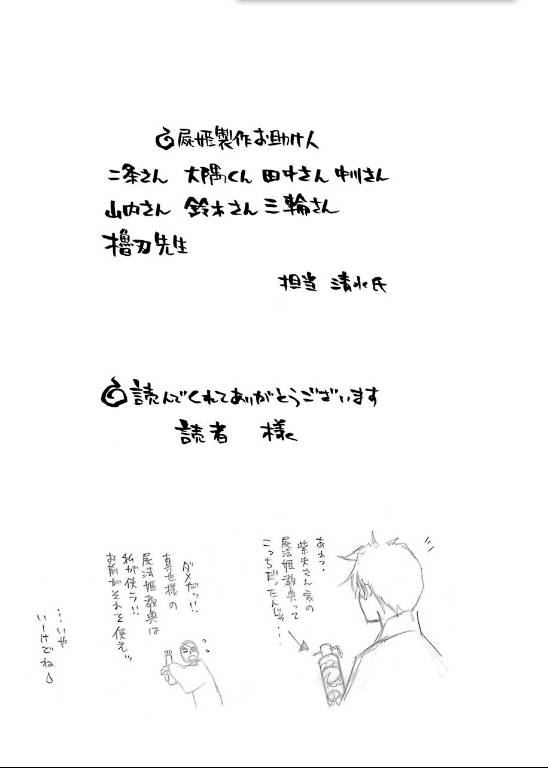 屍姫製作お助け人
二条さん 大隅くん 田中さん 中川さん
山内さん 鈴木さん 三輪さん
櫓刃先生
担当 清水氏
読んでくれてありがとうございます
読者 様
あれっ?
柴夫さん家の
屍法姫教典って
こっちだったんじゃ…
ダメだッ!!
真也様の
屍法姫教典は
私が使う!!
お前がそれを使えッ
…いや
いーけどね